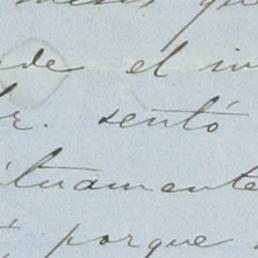 que
de el in
r. sentó
ituamente
porque